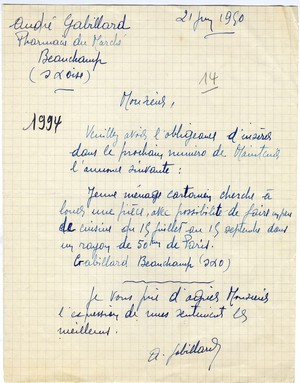 André Gabillard
Pharmacie du Marché
Beauchamp
(S Oise)
21 1950
14
Monsieur,
1994
Veuillez avoir l'obligeance d'insérer
dans le prochain numéro de Maintenir
l'annonce suivante :
Jeune ménage cherche à
louer une pièce, avec possibilité de faire un peu
de cuisine du 15 juillet au 15 septembre dans
un rayon de 50 km de Paris.
Gabillard Beauchamp (S&O)
Je vous prie d'agréer Monsieur
l'expression de mes sentiments les
meilleurs.
A. Gabillard